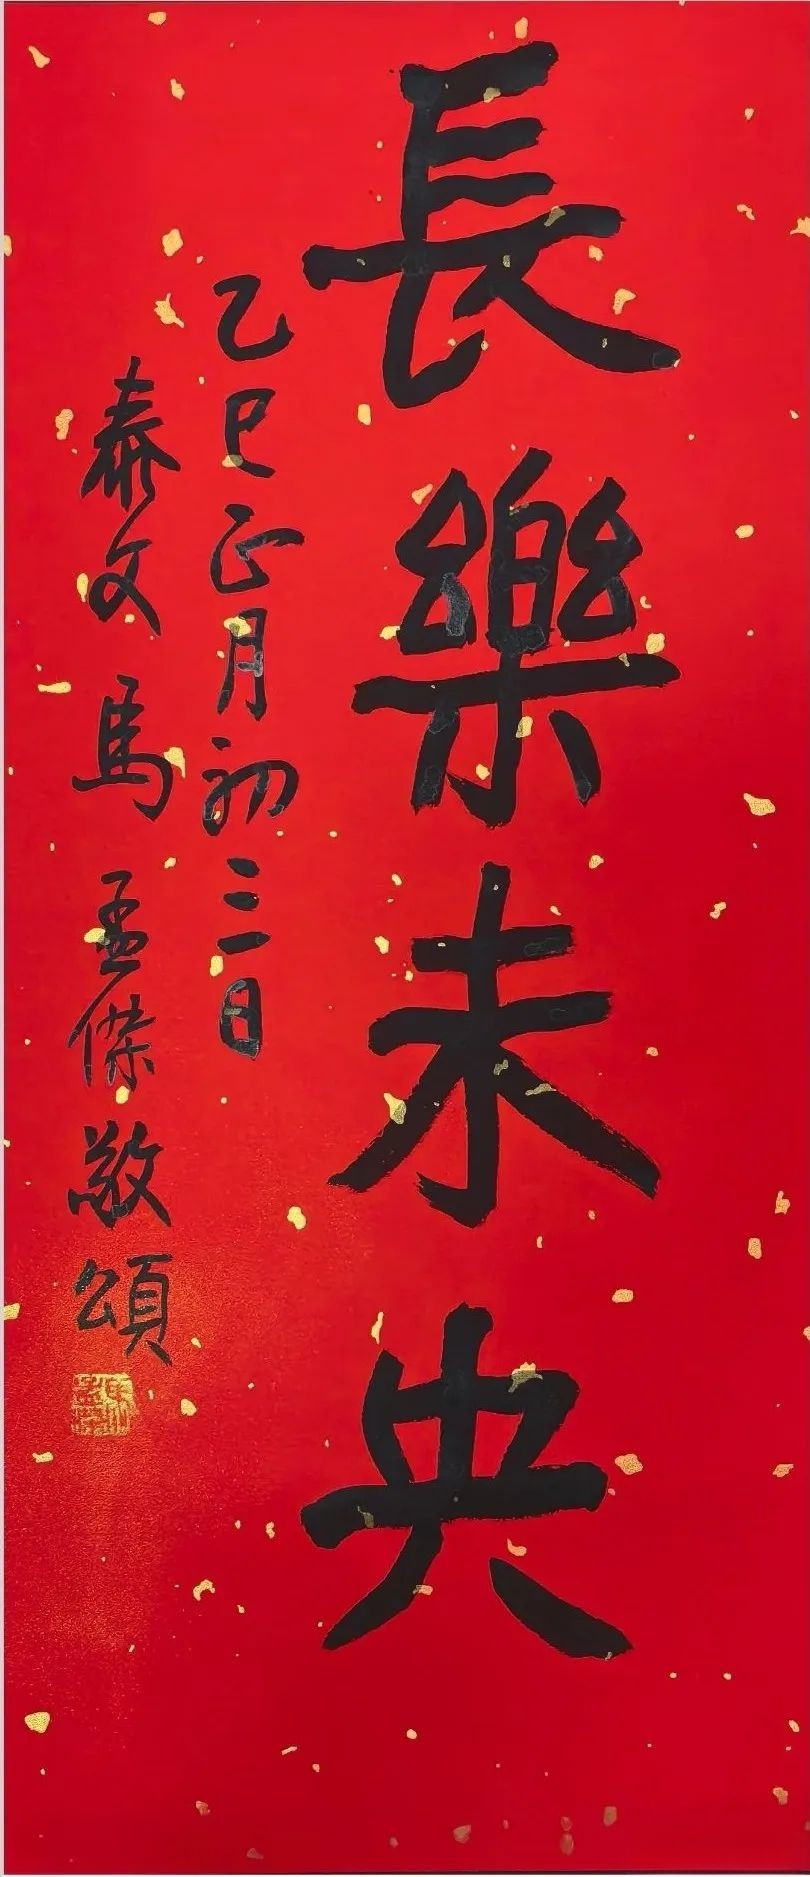 長樂未央
乙巳正月初三日
泰文 馬孟傑敬頌